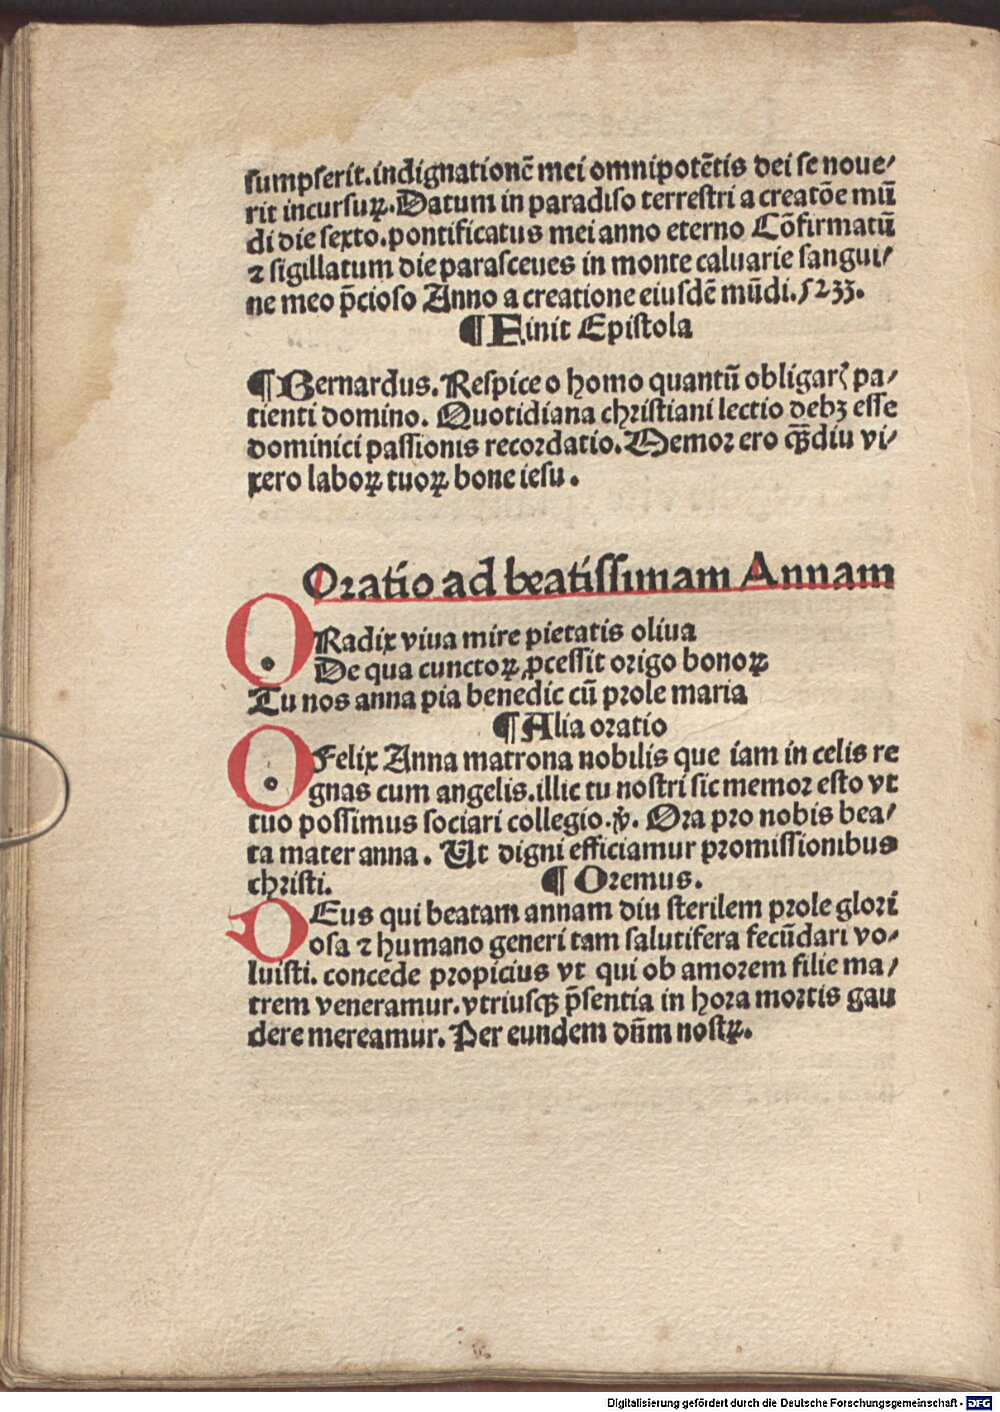 sumpserit.indignationē mei omnipotētis dei se noue/
rit incursuꝝ.Datum in paradiso terrestri a creatōe mū
di die sexto.pontificatus mei anno eterno Cōfirmatū
⁊ sigillatum die parasceues in monte caluarie sangui/
ne meo p̄cioso Anno a creatione eiusdē mūdi.5233.
¶Finit Epistola
¶Bernardus.Respice o homo quantū obligarꝭ pa/
tienti domino. Quotidiana christiani lectio debꝫ esse
dominici passionis recordatio.Memor ero qᷓdiu vi/
xero laboꝝ tuoꝝ bone iesu.
Oratio ad beatissimam Annam
O Radix viua mire pietatis oliua
De qua cunctoꝝ ꝓcessit origo bonoꝝ
Tu nos anna pia benedic cū prole maria
¶Alia oratio
O Felix Anna matrona nobilis que iam in celis re
gnas cum angelis.illic tu nostri sic memor esto vt
tuo possimus sociari collegio.℣. Ora pro nobis bea/
ta mater anna. Ut digni efficiamur promissionibus
christi. ¶ Oremus.
DEus qui beatam annam diu sterilem prole glori
osa ⁊ humano generi tam salutifera fecūdari vo/
luisti. concede propicius vt qui ob amorem filie ma/
trem veneramur.vtriusqꝫ p̄sentia in hora mortis gau
dere mereamur. Per eundem dn̄m nostꝝ.
Digitalisierung gefördert durch die Deutsche Forschungsgemeinschaft - DFG